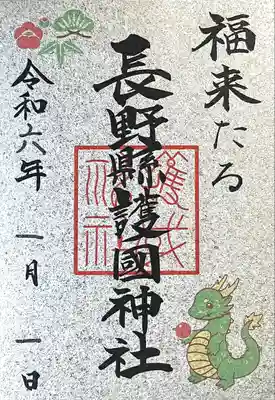 福来たる
長野縣護國神社
令和六年 一月 一日